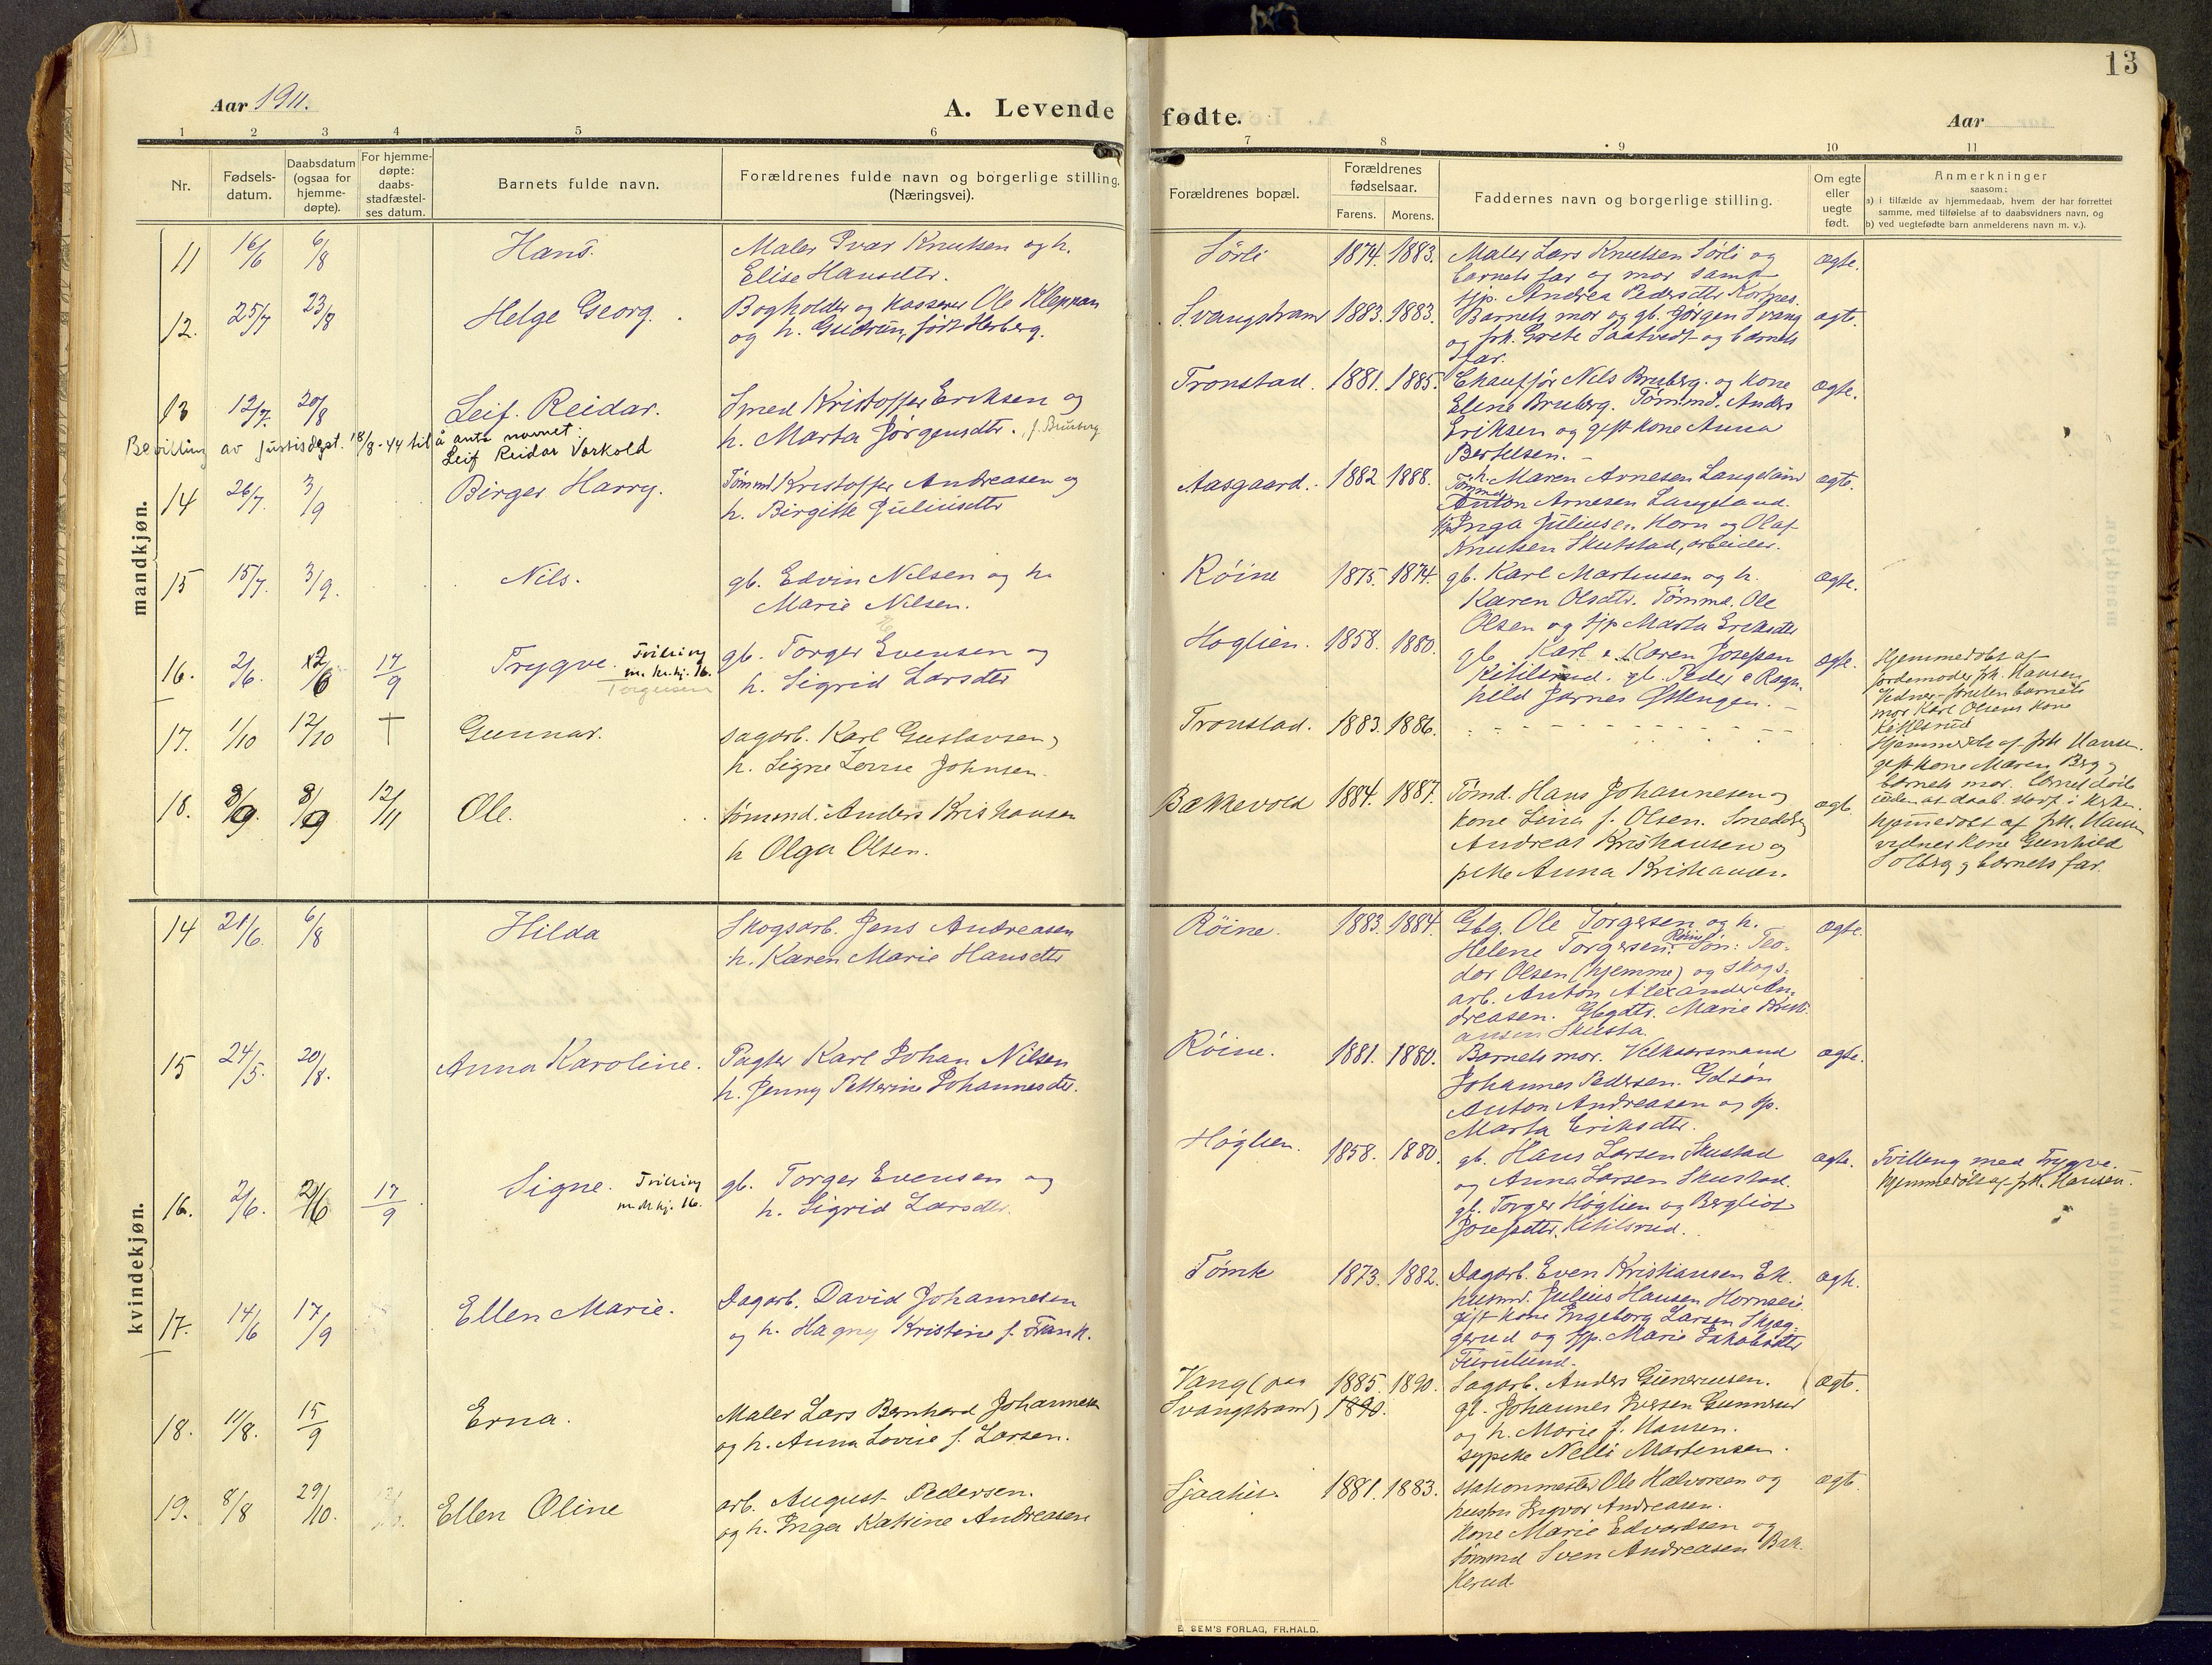 13
Aar 1911.
A. Levende fødte.
Aar
1 2 3 4 5 6 7 8 9 10 11
Nr.
Fødsels-
datum.
Daabsdatum
(ogsaa for
hjemme-
døpte).
For hjemme-
døpte:
daabs-
stadfæstel-
ses datum.
Barnets fulde navn.
Forældrenes fulde navn og borgerlige stilling.
(Næringsvei).
Forældrenes bopæl.
Forældrenes
fødselsaar.
Farens. Morens.
Faddernes navn og borgerlige stilling.
Om egte
eller
uegte
født.
Anmerkninger
saasom:
a) i tilfælde av hjemmedaab, hvem der har forrettet
samme, med tilføielse af to daabsvidners navn, og
b) ved uegtefødte barn anmelderens navn m. v.).
mandkjøn.
11 16/6 6/8 Hans.
Maler Ivar Knutsen og h.
Elise Hansdtr.
Sørli 1874. 1883.
Maler Lars Knutsen Sørli og
barnets far og mor samt
pp. Andrea Pedersdtr
ægte.
12. 25/7 23/8 Helge Georg.
Bogholder og kasserer Ole Kleppan
og h. Gudrun, født Herberg.
Svangstrand 1883. 1883.
Barnets mor og gb. Jørgen Svang
og frk. Grete Saatvedt og barnets
far.
ægte.
13 12/7. 20/8 Leif. Reidar.
Smed Kristoffer Eriksen og
h. Marta Jørgensdtr. f. Bruberg
Bevilling av Justisdept. 18/8-44 til å anta navnet:
Leif Reidar Varkold
Tronstad. 1881. 1885.
Chauffør Nils Bruberg. og kone
Elene Bruberg. Tømmd. Anders
Eriksen og gift kone Anna
Bertelsen.
ægte.
14 26/7. 3/9 Birger Harry.
Tømmd Kristoffer Andreasen og
h. Birgitte Juliusdtr
Aasgaard. 1882 1888.
h. Maren Arnesen Langeland
Tømmd Anton Arnesen Langeland.
pp Inga Juliusen Horn og Olaf
Knutsen Skutstad, arbeider.
ægte.
15 15/7. 3/9. Nils.
gb. Edvin Nilsen og h.
Marie Nilsen.
Røine 1875. 1874.
gb. Karl Martinsen og h.
Karen Olsdtr. Tømmd. Ole
Olsen og pp Marta Eriksdtr
ægte.
16. 2/6. 12/6 17/9 Trygve. Tvilling
m. kv.kj. 16.
Torgersen
gb. Torger Evensen og
h. Sigrid Larsdtr
Høglien. 1858. 1880.
gb. Karl & Karen Josefsen
Kitilsrud. gb. Peder & Ragn-
hild
ægte.
Hjemmedøbt af
jordemoder frk. Hansen
mor Karl Olsens kone
Kitilsrud
17. 1/10 12/10 † Gunnar.
sagarb. Karl Gustavsen,
h. Signe Lovise Johnsen.
Tronstad. 1883. 1886.
Hjemmedøbt af frk Hansen.
gift kone Maren Berg og
barnets mor.
18. 8/9. 8/9 12/11 Ole.
tømmd. Anders Kristiansen
h Olga Olsen.
Bækkevold 1884. 1887.
Tømd. Hans Johannesen og
kone Lina f. Olsen.
Andreas Kristiansen og
pike Anna Kristiansen.
ægte.
hjemmedøbt af frk. Hansen
vidner kone Gunhild
Solberg og barnets far.
kvindekjøn.
14 21/6. 6/8 Hilda
Skogsarb. Jens Andreasen
h. Karen Marie Hansdtr
Røine. 1883. 1884.
Gbg. Ole Torgersen og h.
Helene Torgersen. Røine Søn: Teo-
dor Olsen (hjemme) og Skogs-
arb. Anton Alexander An-
dreasen. Gbgdtr. Marie Kristi-
ansen Skusta.
ægte.
15 24/5. 20/8. Anna Karoline.
Pagter Karl Johan Nilsen
h. Jenny Petterine Johannesdtr.
Røine. 1881. 1880.
Barnets mor.
Johannes Pedersen. Gdsøn
Anton Andreasen og pp.
Marta Eriksdtr.
ægte.
16. 2/6. 2/6 17/9 Signe. Tvilling
m. M.kj. 16.
gb. Torger Evensen og
h. Sigrid Larsdtr.
Høglien. 1858. 1880.
gb. Hans Larsen Skustad
og Anna Larsen Skustad.
gb. Torger Høglien og Bergliot
Josefsdtr. Kitilsrud.
ægte.
Tvilling med Trygve.
hjemmedøbt af frk. Hansen.
17. 14/6 17/9 Ellen Marie.
Dagarb. David Johannesen
og h. Hagny Kristine f. Frank.
Tømte 1873. 1882.
Dagarb. Even Kristiansen Ek.
husmd. Julius Hansen Hornseie
gift kone Ingeborg Larsen Skjeg-
gerud og pp. Marie Jakobsdtr
Furulund.
ægte.
18. 11/8. 15/9 Erna.
Maler Lars Bernhard Johannesen
og h. Anna Lovise f. Larsen.
Vang (paa
Svangstrand) 1885. 1890.
1890.
Sagarb. Anders Gunerusen.
gb. Johannes Iversen Gunnerud
og h. Marie f. Hansen.
sypike Nelli Martensen.
ægte.
19. 8/8 29/10. Ellen Oline
arb. August Pedersen.
og h. Inga Katrine Andreasen
Sjaatil. 1881. 1883.
stationmester Ole Halvorsen og
hustru Ingvor Andreasen.
kone Marie Edvardsen og
tømmd Sven Andreasen Bak-
kerud.
ægte
E. SEM'S FORLAG, FR.HALD.